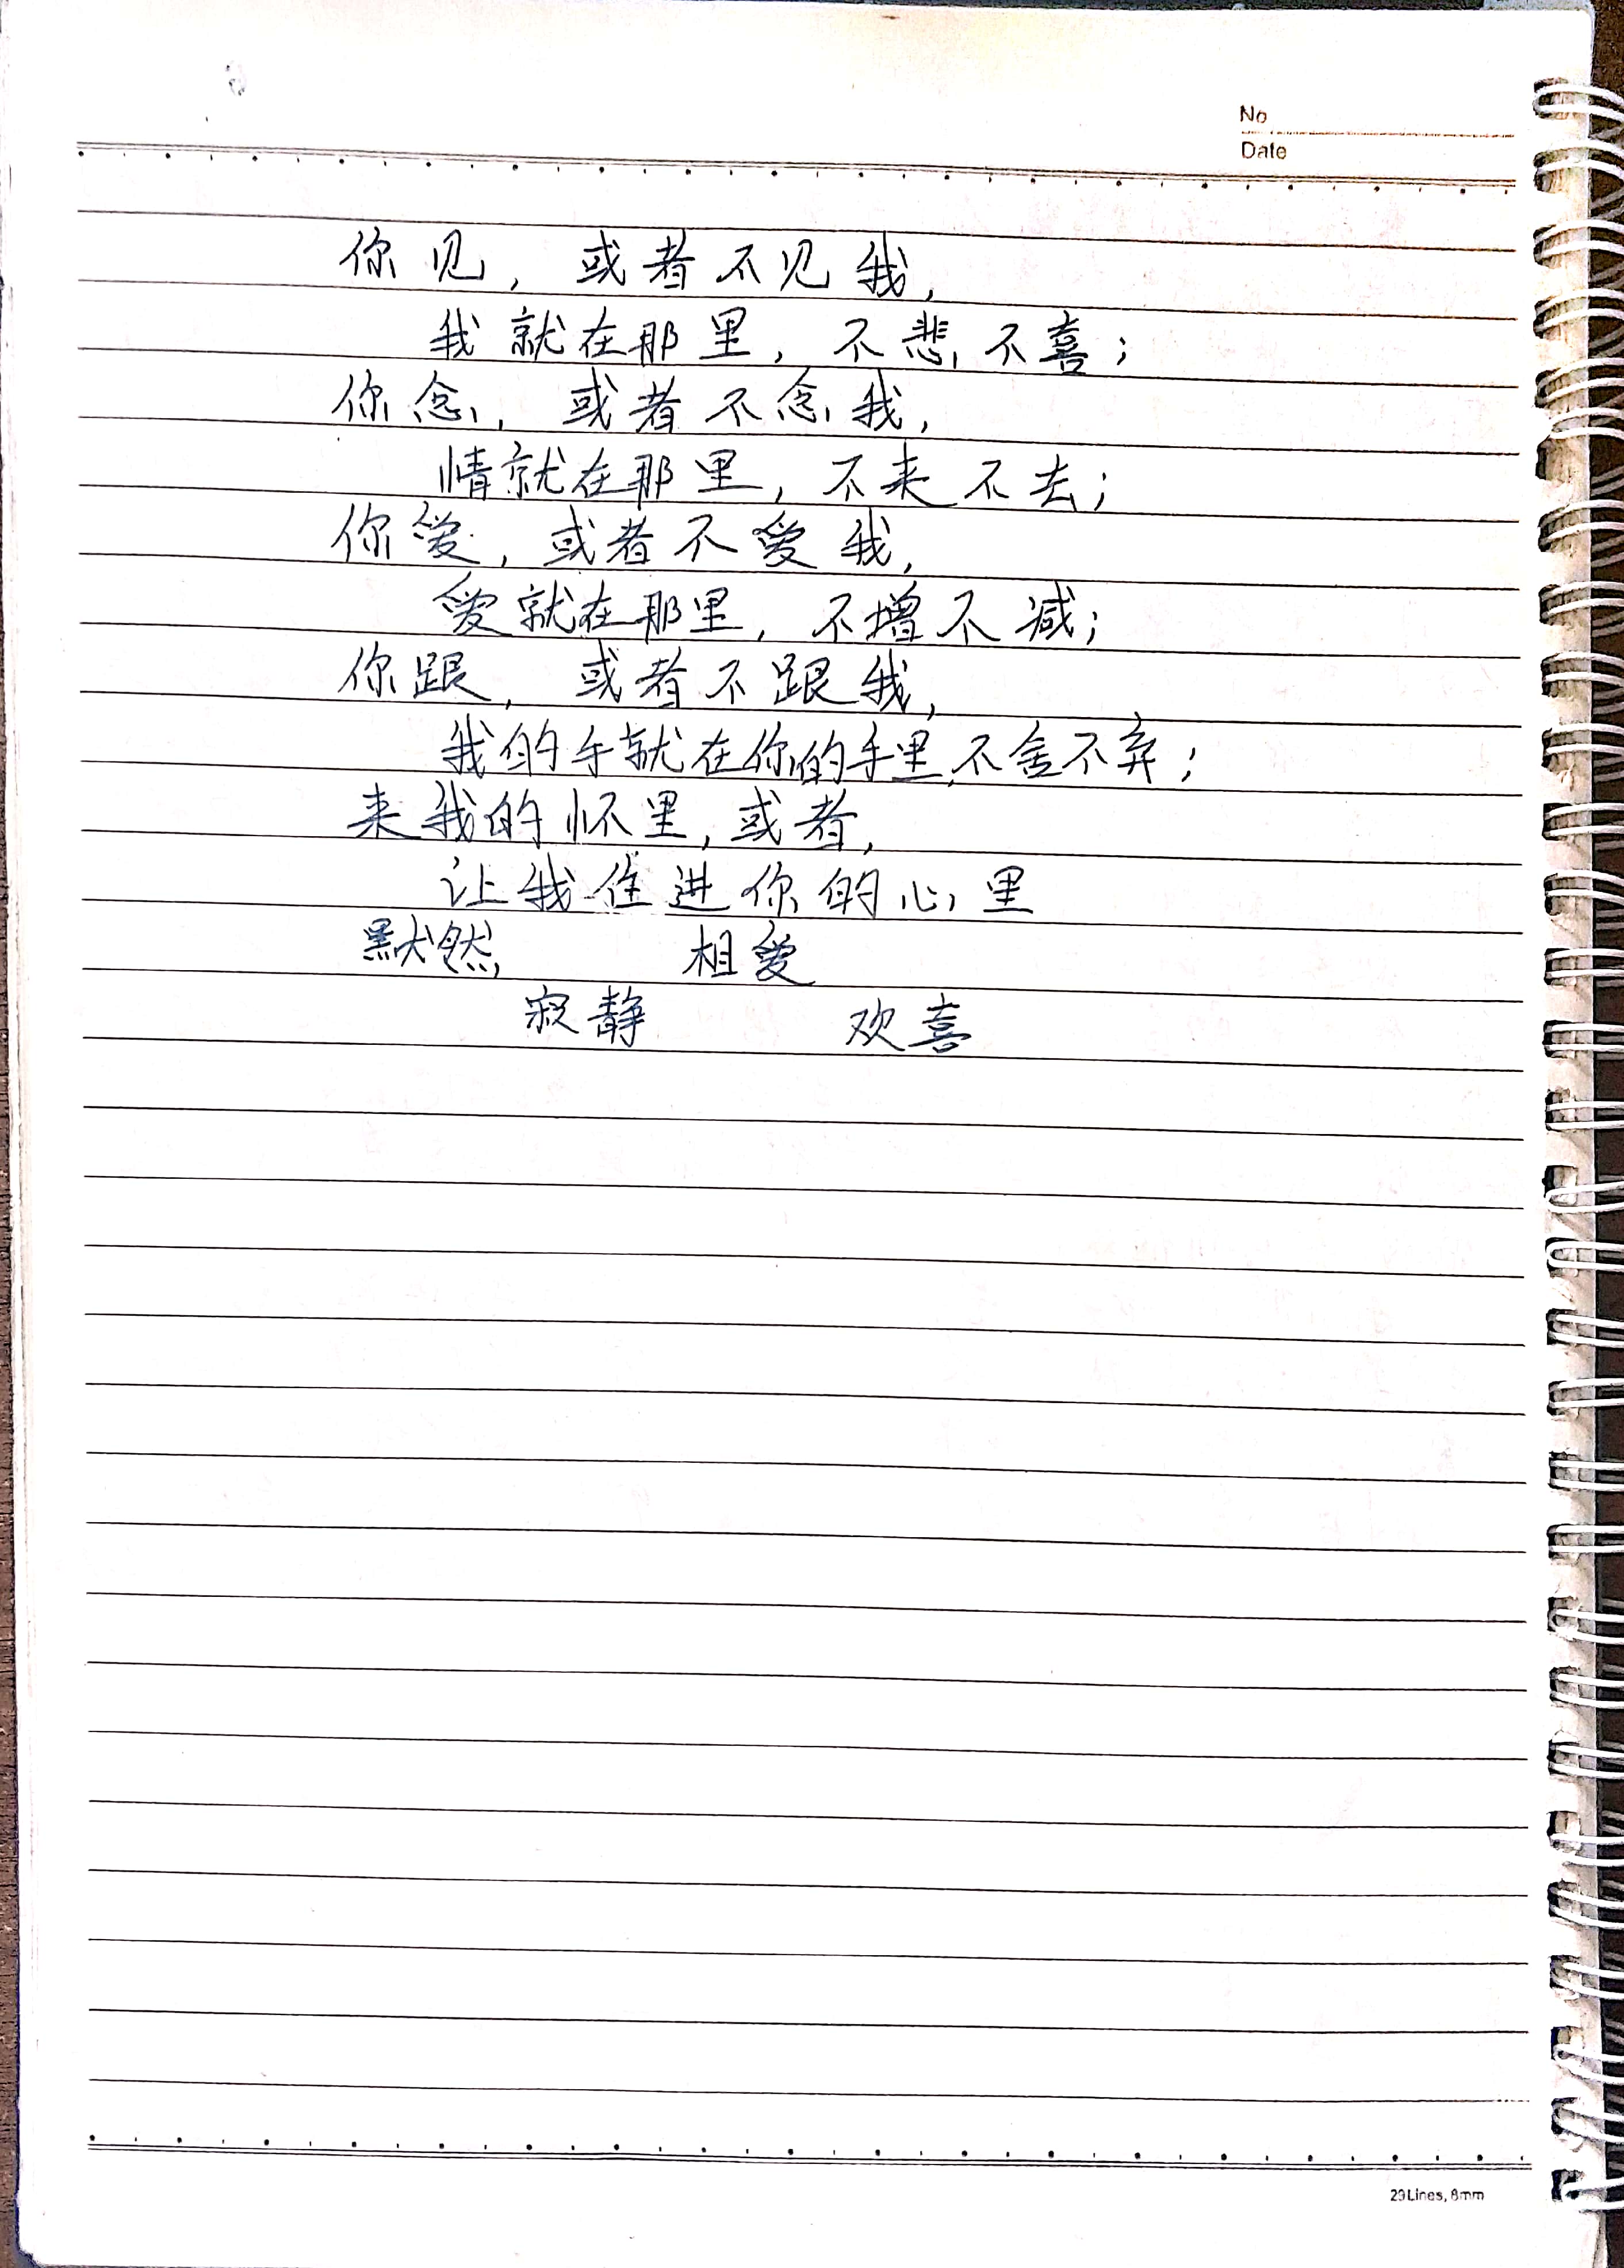 No
Date
你见，或者不见我，
我就在那里，不悲不喜；
你念，或者不念我，
情就在那里，不来不去；
你爱，或者不爱我，
爱就在那里，不增不减；
你跟，或者不跟我，
我的手就在你的手里，不舍不弃；
来我的怀里，或者，
让我住进你的心里
默然 相爱
寂静 欢喜
29Lines, 8mm